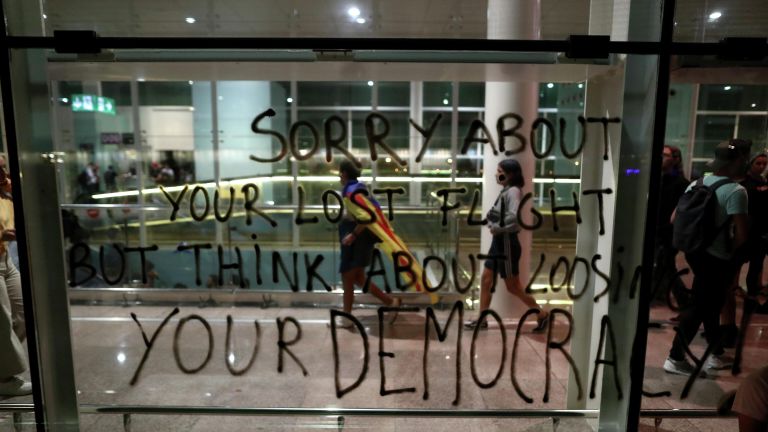 SORRY ABOUT
YOUR LOST FLIGHT
BUT THINK ABOUT LOOSING
YOUR DEMOCRACY